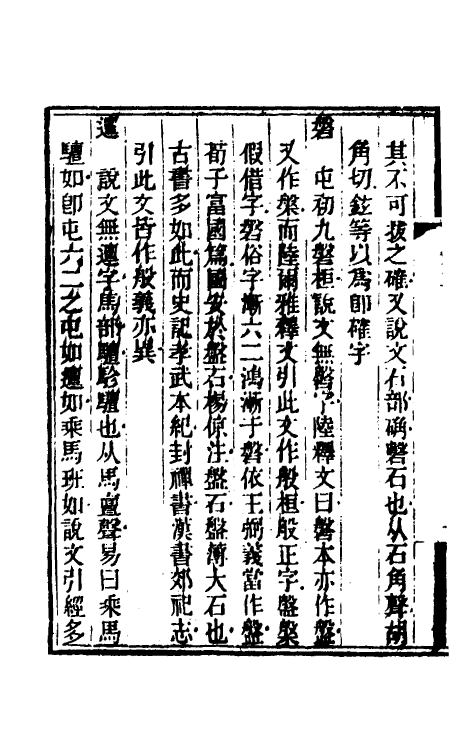 其不可拔之確又說文石部硧磬石也从石角聲胡
角切鉉等以爲卽確字
磐　屯初九磐桓說文無磐字陸釋文曰磐本亦作盤
又作槃而陸爾雅釋文引此文作般桓般正字盤槃
假借字磐俗字漸六二鴻漸于磐依王弼義當作盤
荀子富國篇國安於盤石楊倞注盤石盤薄大石也
古書多如此而史記孝武本紀封禪書漢書郊祀志
引此文皆作般義亦異
邅　說文無邅字馬部驙駗驙也从馬亶聲易曰乘馬
驙如卽屯六二之屯如邅如乘馬班如說文引經多